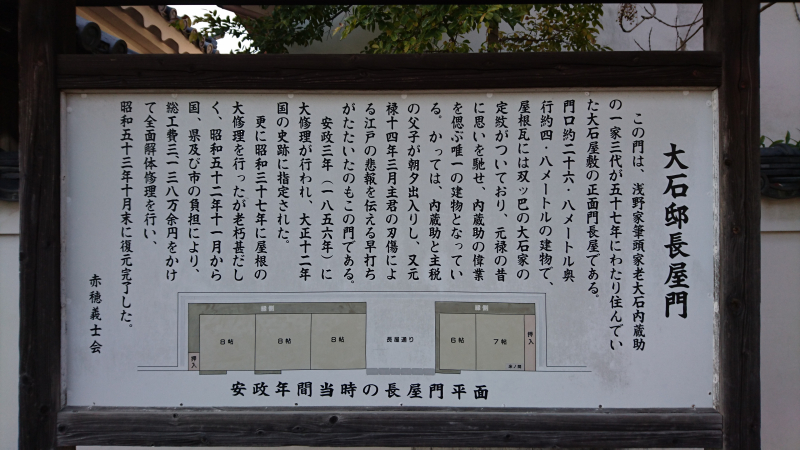 大石邸長屋門
この門は、浅野家筆頭家老大石内蔵助
の一家三代が五十七年にわたり住んでい
た大石屋敷の正面門長屋である。
門口約二十六・八メートル奥
行約四・八メートルの建物で、
屋根瓦には双ッ巴の大石家の
定紋がついており、元禄の昔
に思いを馳せ、内蔵助の偉業
を偲ぶ唯一の建物となってい
る。かっては、内蔵助と主税
の父子が朝夕出入りし、又元
禄十四年三月主君の刃傷によ
る江戸の悲報を伝える早打ち
がたたいたのもこの門である。
安政三年(一八五六年)に
大修理が行われ、大正十二年
国の史跡に指定された。
更に昭和三十七年に屋根の
大修理を行ったが老朽甚だし
く、昭和五十二年十一月から
国、県及び市の負担により、
総工費三、一三八万余円をかけ
て全面解体修理を行い、
昭和五十三年十月末に復元完了した。
赤穂義士会
縁側
縁側
押入
8帖
8帖
8帖
長屋通り
6帖
7帖
押入
床ノ間
安政年間当時の長屋門平面